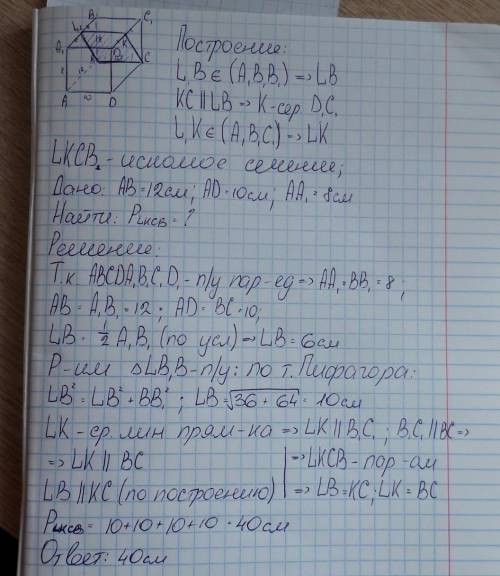 B
C₁
L
A₁
K
D₁
C
A
10
D
Построение:
L,B ∈ (A₁B₁B,) => LB
KC || LB => K-сер. D₁C₁
L,K ∈ (A₁B₁C₁) => LK
LKCB - искомое сечение;
Дано: AB = 12см; AD = 10см; AA₁ = 8см
Найти: Pʟᴋᴄʙ = ?
Решение:
Т.к. ABCDA₁B₁C₁D₁ - п/у пар-ед => AA₁ = BB₁ = 8;
AB = A₁B₁ = 12; AD = BC = 10;
LB = 1/2 A₁B₁ (по усл) => LB = 6см
Р-им △LB₁B - п/у: по т. Пифагора:
LB² = LB² + BB₁²; LB = √36 + 64 = 10см
LK - ср. лин прям-ка => LK || B₁C₁; B₁C₁ || BC =>
=> LK || BC => LKCB - пар-ам
LB || KC (по построению) => LB = KC; LK = BC
Pʟᴋᴄʙ = 10+10+10+10 = 40см
Ответ: 40см